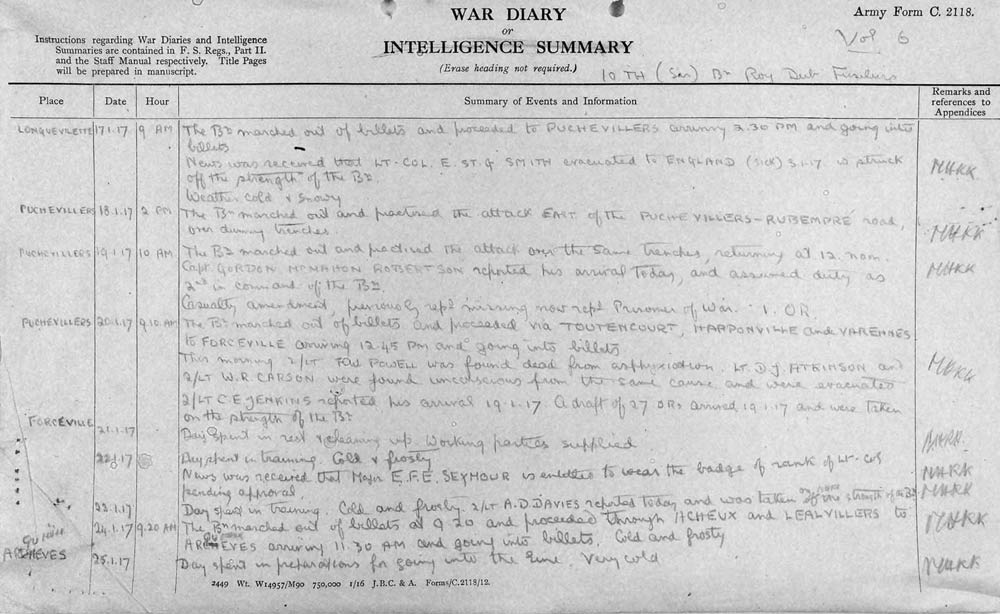 WAR DIARY
or
INTELLIGENCE SUMMARY
(Erase heading not required.)
Army Form C. 2118.
Vol 6
Instructions regarding War Diaries and Intelligence
Summaries are contained in F. S. Regs., Part II.
and the Staff Manual respectively. Title Pages
will be prepared in manuscript.
10TH (Ser) Bn Roy Dub Fusiliers
Place Date Hour Summary of Events and Information Remarks and references to Appendices
LONGUEVILETTE 17.1.17 9 AM The Bn marched out of billets and proceeded to PUCHEVILLERS arriving 2.30 PM and going into
billets
News was received that LT-COL. E. ST. G SMITH evacuated to ENGLAND (SICK) 3.1.17 is struck
off the strength of the Bn. MHKK
Weather cold & snowy
PUCHEVILLERS 18.1.17 2 PM The Bn marched out and practised the attack EAST of the PUCHEVILLERS-RUBEMPRE road,
over dummy trenches. MHKK
PUCHEVILLERS 19.1.17 10 AM The Bn marched out and practised the attack over the same trenches, returning at 12 noon.
Capt. GORDON MCMAHON ROBERTSON reported his arrival today, and assumed duty as MHKK
2nd in command of the Bn.
Casualty amendment, previously repd missing now repd Prisoner of War. 1. OR.
PUCHEVILLERS 20.1.17 9.10 AM The Bn marched out of billets and proceeded via TOUTENCOURT, HARPONVILLE and VARENNES
to FORCEVILLE arriving 12.45 PM and going into billets
This morning 2/LT POWELL was found dead from asphyxiation. LT. D.J. ATKINSON and MHKK
2/LT W.R. CARSON were found unconscious from the same cause and were evacuated
2/LT C E JENKINS reported his arrival 19.1.17. A draft of 27 ORs arrived 19.1.17 and were taken
on the strength of the Bn
FORCEVILLE 21.1.17 Day spent in rest & cleaning up. Working parties supplied MHKK
22.1.17 Day spent in training. Cold & frosty
News was received that Major E.F.E. SEYMOUR is entitled to wear the badge of rank of Lt-Col MHKK
pending approval. MHKK
Day spent in training. Cold and frosty. 2/LT A.D. DAVIES reported today and was taken on the strength of the Bn
24.1.17 9.20 AM The Bn marched out of billets at 9 20 and proceeded through ACHEUX and LEALVILLERS to MHKK
arriving 11.30 AM and going into billets. Cold and frosty
25.1.17 Day spent in preparations for going into the line. Very cold MHKK
2449 Wt. W14957/M90 750,000 1/16 J.B.C. & A. Forms/C.2118/12.